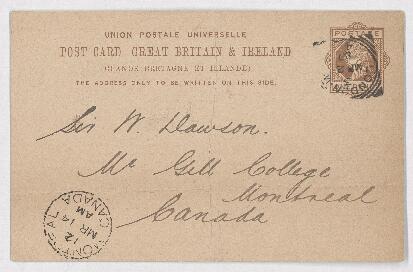 UNION POSTALE UNIVERSELLE
POST CARD. GREAT BRITAIN & IRELAND
(GRANDE BRETAGNE ET IRLANDE)
THE ADDRESS ONLY TO BE WRITTEN ON THIS SIDE.
POSTAGE
Sir W. Dawson.
Mc Gill College
Montreal
Canada
MONTREAL
CANADA
12
MR 14
AM